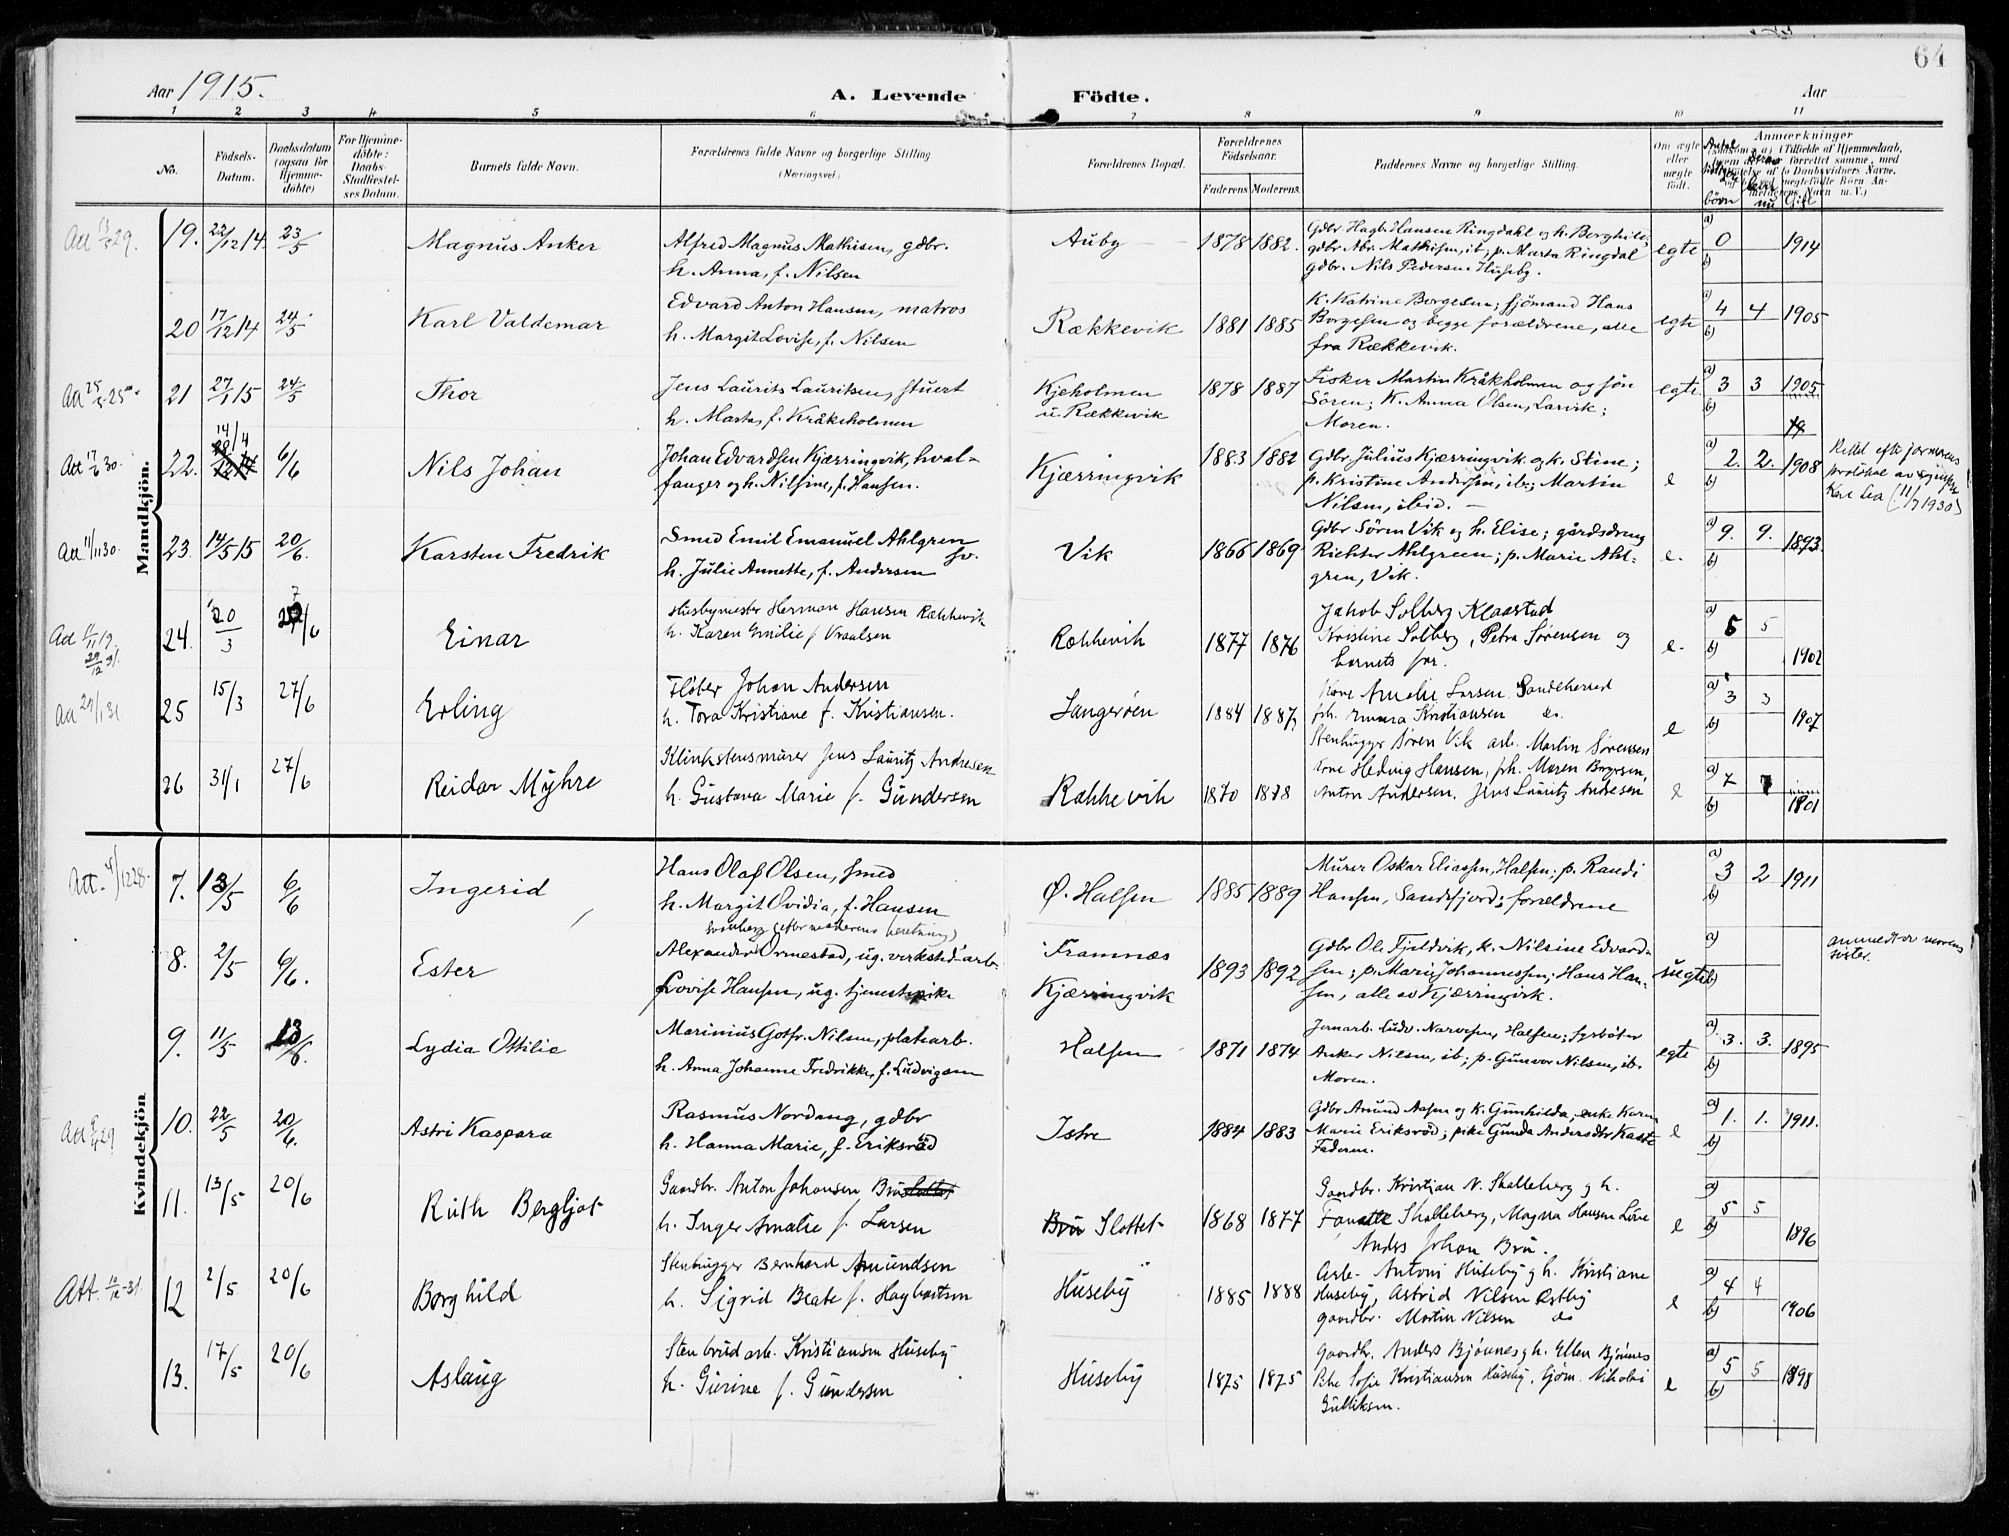 64
Aar 1915. A. Levende Födte. Aar
1 2 3 4 5 6 7 8 9 10 11
No. Födsels-Datum. Daabsdatum (ogsaa for Hjemme-døbte) For Hjemme-døbte: Daabs-Stadfæstel-ses Datum. Barnets fulde Navn. Forældrenes fulde Navne og borgerlige Stilling (Næringsvei) Forældrenes Bopæl. Forældrenes Födselsaar. Faderens Moderens. Faddernes Navne og borgerlige Stilling. Om ægte eller uægte født. Anmærkninger
Mandkjön.
19. 22/12 14. 23/5 Magnus Anker
Alfred Magnus Mathisen, gdbr.
h. Anna, f. Nilsen
Auby 1878 1882.
Gdbr Hagb. Hansen Ringdahl og h. Borghild;
gdbr. Abr. Mathisen, ib; p. Marta Ringdal
gdbr. Nils Pedersen Huseby.
egte a) 0 b) 1914
20 17/12 14 24/5 Karl Valdemar
Edvard Anton Hansen, matros
h. Margit Lovise, f. Nilsen
Rækkevik 1881 1885
K. Katrine Borgesen; sjömand Hans
Borgesen og begge forældrene, alle
fra Rækkevik.
egte a) 4 4 b) 1905
21 27/1 15 24/5 Thor
Jens Laurits Lauritsen, stuert
h. Marta, f. Kråkeholmen
Kjeholmen
u. Rækkevik
1878 1887
Fisker Martin Kråkholmen og sön
Sören; K. Anna Olsen, Larvik;
Moren.
egte. a) 3 3 b) 1905
22. 14/4 6/6 Nils Johan
Johan Edvardsen Kjærringvik, hval-
fanger og h. Nilsine, f. Hansen.
Kjærringvik 1883 1882
Gdbr. Julius Kjærringvik og k. Stine;
p. Kristine Andersen, ib; Martin
Nilsen, ibid.
e a) 2. 2. b) 1908
23. 14/5 15 20/6. Karsten Fredrik
Smed Emil Emanuel Ahlgren
sv.
h. Julie Annette, f. Andersen
Vik 1866 1869
Gdbr Sören Vik og h. Elise; gårdsdreng
Richter Ahlgreen; p. Marie Ahl-
gren, Vik.
e. a) 9. 9. b) 1893.
24. 20/3 27/6 Einar
Husbymester Herman Hansen Rækkevik
h. Karen Emilie f. Vraalsen
Rækkevik 1877 1876
Jakob Solberg Klaastad
Kristine Solberg, Petra Sørensen og
barnets far.
e. a) 5 5 b) 1902
25 15/3 27/6 Erling
Fløter Johan Andersen
h. Tora Kristiane f. Kristiansen.
Langeröen 1884 1887
Kone Amalie Larsen Sandeherred
frk. Emma Kristiansen do.
Stenhugger Søren Vik arb. Martin Sørensen
e a) 3 3 b) 1907
26 31/1 27/6 Reidar Myhre
Klinkstensmurer Jens Lauritz Andresen
h. Gustava Marie f. Gundersen
Rækkevik 1870 1878
Kone Hedvig Hansen, frk. Maren Borgesen,
Anton Andersen. Jens Lauritz Andresen
e a) 7 7 b) 1901
Kvindekjön
7. 13/5 6/6 Ingerid
Hans Olaf Olsen, smed
h. Margit Ovidia, f. Hansen
Ö. Halsen 1885 1889
Murer Oskar Eliassen, Halsen; p. Randi
Hansen, Sandefjord; forældrene
a) 3 2 b) 1911
8. 2/5 6/6. Ester
Alexander Ormestad, ug. verksted-arb.
Lovise Hansen, ug. tjenestepike
Framnæs
Kjærringvik
1893 1892
Gdbr Ole Fjeldvik, k. Nilsine Edvard-
sen; p. Marie Johannessen; Hans Han-
sen, alle av Kjærringvik.
uegte a) b)
anmeldt av morens
søster.
9. 11/5 13/6. Lydia Ottilie
Marinius Gotfr. Nilsen, platearb.
h. Anna Johanne Fredrikke, f. Ludvigsen
Halsen 1871 1874
Jernarb. Ludv. Narvesen, Halsen; fyrböter
Anker Nilsen, ib; p. Gunvor Nilsen, ib.
Moren.
egte a) 3. 3. b) 1895
10. 22/5 20/6. Astri Kaspara
Rasmus Nordang, gdbr
h. Hanna Marie, f. Eriksröd
Istre 1884 1883
Gdbr Anund Aasen og k. Gunhilda; enke Karen
Marie Eriksröd; pike Gunda Andersdtr Kaste
Faderen.
e a) 1. 1. b) 1911.
11. 13/5 20/6 Ruth Bergljot
Gaardbr. Anton Johansen Bru
h. Inger Amalie f. Larsen
Bru Slottet 1868 1877
Gaardbr. Kristian N. Skalleberg og h.
Fanette Skalleberg, Magna Hansen Löve
Anders Johan Bru.
e a) 5 5 b) 1896
12 2/5 20/6 Borghild
Stenhugger Bernhard Amundsen
h. Sigrid Beate f. Hagbartsen
Huseby 1885 1888
Arb. Antoni Huseby og h. Kristiane
Huseby, Astrid Nilsen Østby
gaardbr. Martin Nilsen do
e a) 4 4 b) 1906
13. 17/5 20/6 Aslaug
Stenbrudarb. Kristiansen Huseby
h. Gurine f. Gundersen
Huseby 1875 1875
Gaardbr. Anders Bjønnes og h. Ellen Bjønnes
Pike Sofie Kristiansen Huseby, tjörn. Nikolai
Gulliksen.
e a) 5 5 b) 1898